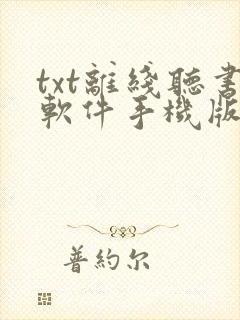 txt離綫聽書
軟件手機版
普約尔